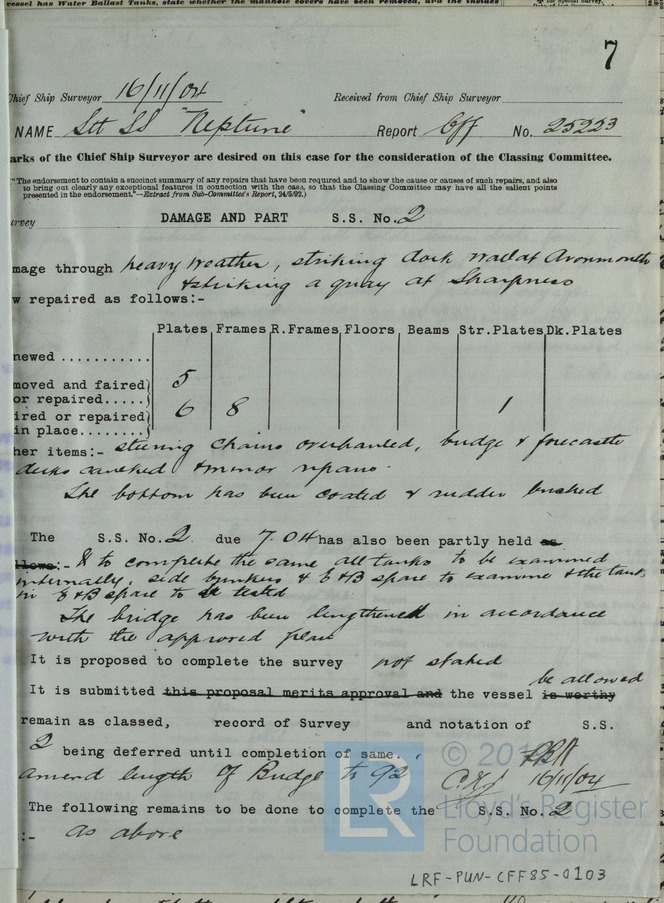 vessel has Water Ballast Tanks, state whether the manhole covers have been removed, and the insides
7
Chief Ship Surveyor 16/11/04 Received from Chief Ship Surveyor
NAME SS "Neptune" Report Cff No. 25223
arks of the Chief Ship Surveyor are desired on this case for the consideration of the Classing Committee.
"The endorsement to contain a succinct summary of any repairs that have been required and to show the cause or causes of such repairs, and also
to bring out clearly any exceptional features in connection with the case, so that the Classing Committee may have all the salient points
presented in the endorsement."—Extract from Sub-Committee's Report, 24/5/92.)
urvey DAMAGE AND PART S.S. No. 2
mage through heavy weather, striking dock wall at Avonmouth
& striking a quay at Sharpness
w repaired as follows:-
Plates Frames R.Frames Floors Beams Str.Plates Dk.Plates
newed ..........
moved and faired) 5
or repaired.....)
ired or repaired) 6 8 1
in place........)
her items:- steering chains overhauled, bridge & forecastle
decks caulked & minor repairs.
The bottom has been coated & rudder bushed
The S.S. No. 2 due 7.04 has also been partly held as
llows:- & to complete the same all tanks to be examined
internally, side bunkers & E & B space to examine & the tank
in E & B space to be tested
The bridge has been lengthened in accordance
with the approved plan
It is proposed to complete the survey not stated
be allowed
It is submitted this proposal merits approval and the vessel is worthy
remain as classed, record of Survey and notation of S.S.
2 being deferred until completion of same.
amend length of Bridge to 92' 16/11/04
The following remains to be done to complete the S.S. No. 2
:- as above
© 20
LR
Lloyd's Register
Foundation
LRF-PUN-CFF85-0103